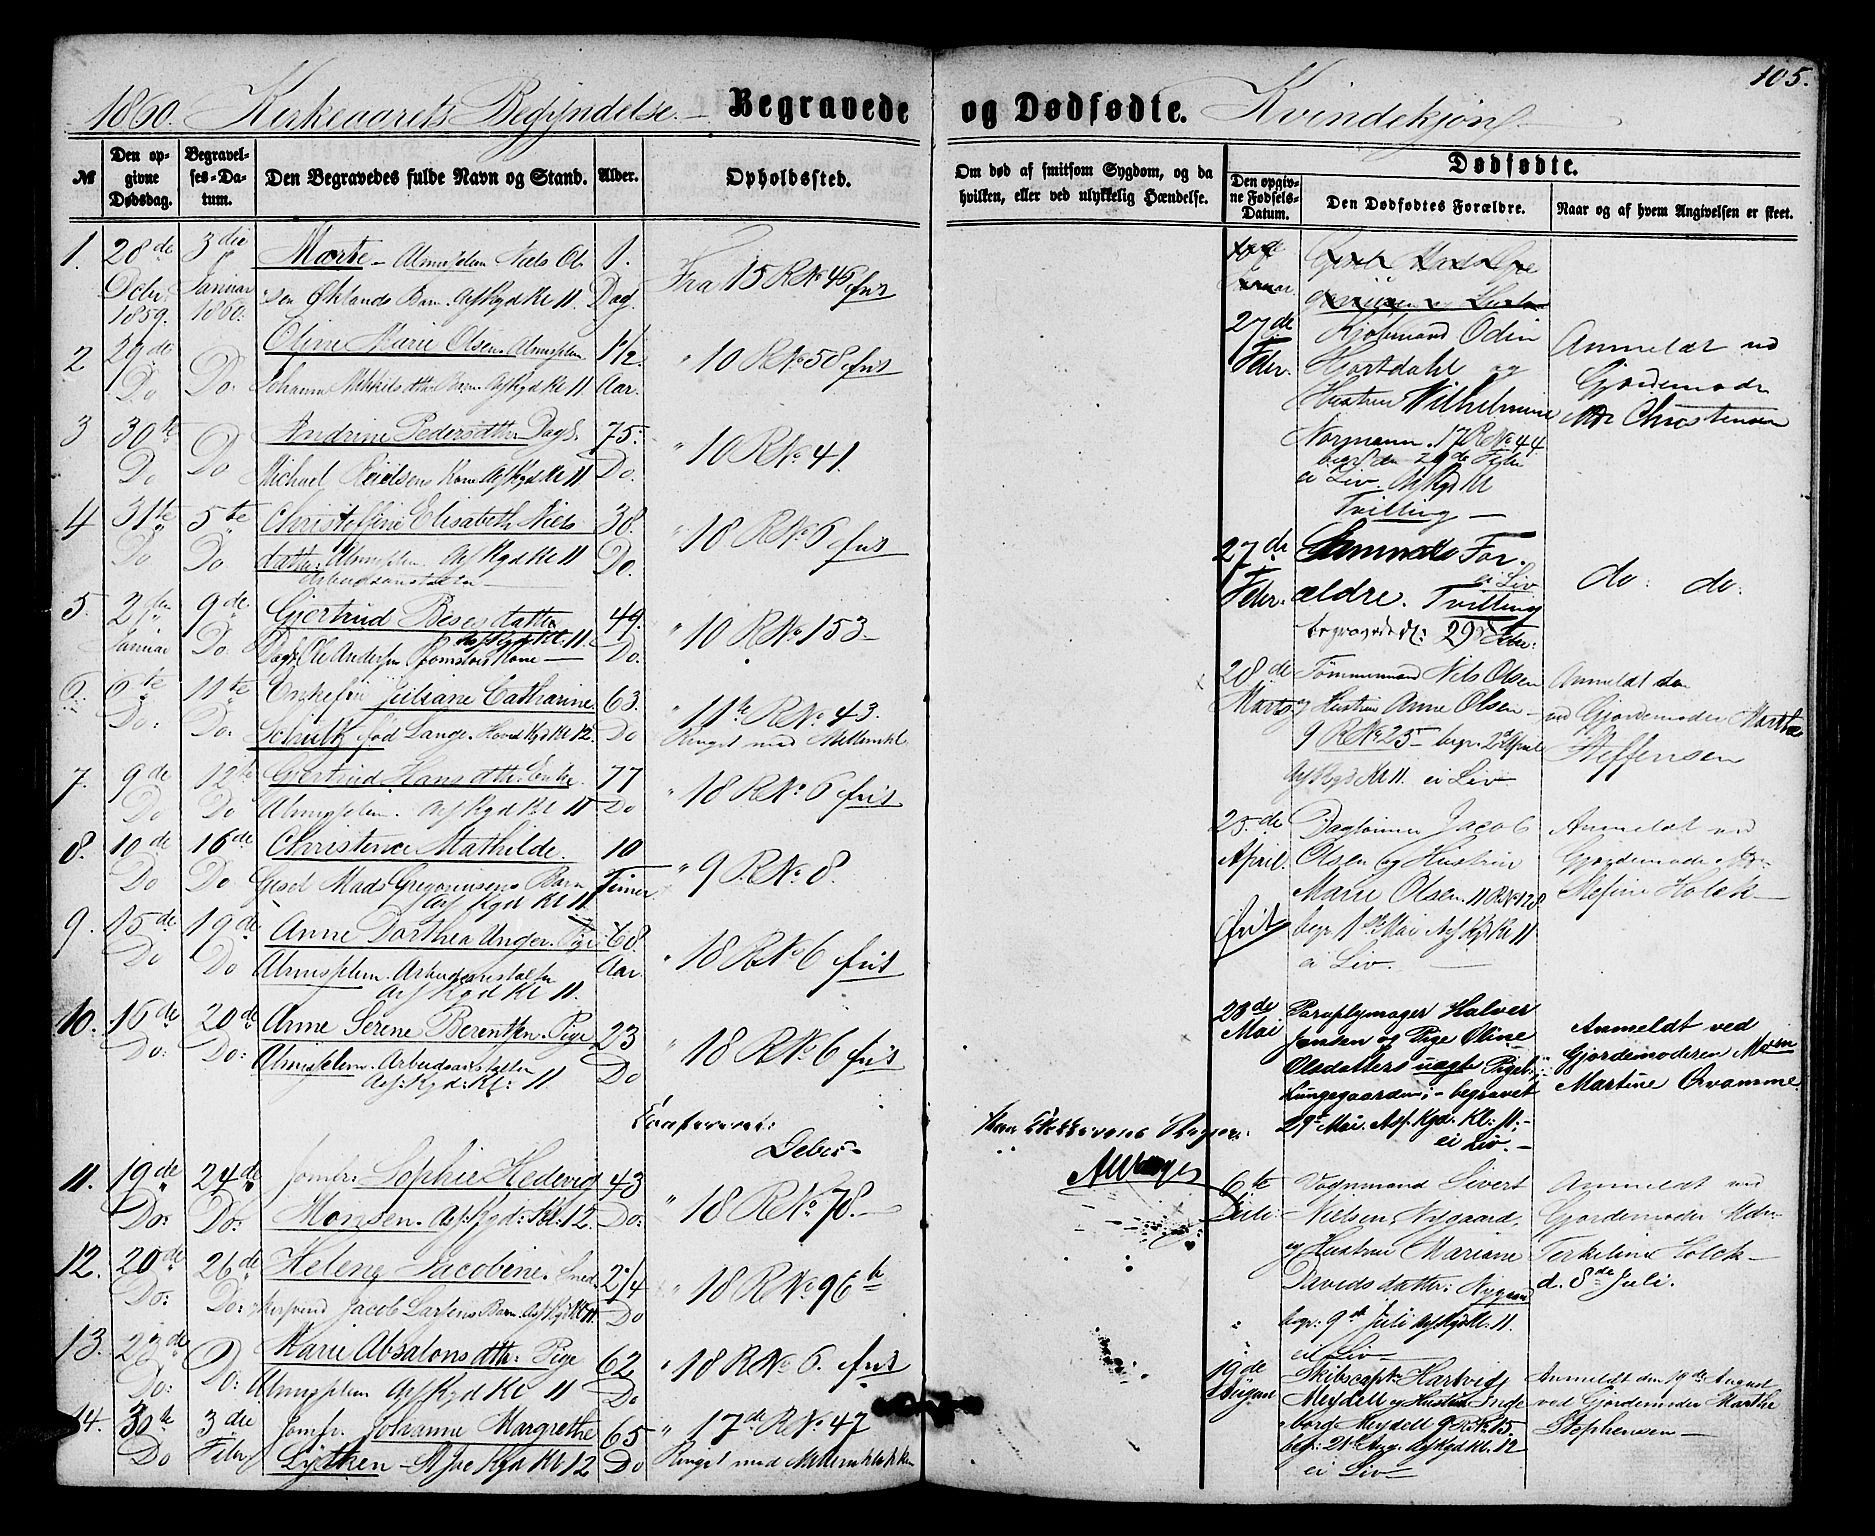 105.
1860. Kirkeaarets Begyndelse. – Begravede og Dødfødte. Kvindekjøn
№
Den opgivne Dødsdag.
Begravelses-Datum.
Den Begravedes fulde Navn og Stand.
Alder.
Opholdssted.
Om død af smitsom Sygdom, og da hvilken, eller ved ulykkelig Hændelse.
Dødfødte.
Den opgivne Fødsels-Datum.
Den Dødfødtes Forældre.
Naar og af hvem Angivelsen er skeet.
1. 28de 3die Marte – Almisslem Niels Ol 1.
Decbr 1859. Januar 1860. sen Øklands Barn. Ass Kgd Kl 11 Dag. Fra 15 R № 45 frit
2 29de Oline Marie Olsen. Almisslem 1 1/2
Do Do. Johanne Mikkelsdttr Barn. Ass Kgd Kl 11 Aar. " 10 R № 58 frit
3 30te Andrine Pedersdttr Dags. 75.
Do Do Michael Reidsens Kone Ass Kgd Kl 11 Do. " 10 R № 41.
4 31te 5te Christoffine Elisabeth Niels 38.
Do Do datter Almisslem Ass Kgd Kl 11 Do. " 18 R № 6 frit
Arbeidsanstalten
5. 2den 9de Gjertrud Besesdatter 49.
Januar Do. Ass Kgd Kl. 11. " 10 R № 153 –
Dags Ole Andersen Kone – Do.
6. 6te 11te Enkefru Juliane Catharine 63. " 11te R № 43.
Do: Do. Schultz fød Lange. Ass Kgd Kl 12. Do Ringet med
7. 9de 12te Gjertrud Hansdttr Enke 77
Do Do Almisslem. Ass Kgd Kl 11 Do " 18 R № 6 frit
8. 10de 16de Christence Mathilde. 10
Do Do Gesel Mads Gregoriusens Barn Timer " 9 R № 8.
Ass Kgd Kl 11
9. 15de 19de Anne Dorthea Unger. Pige 68.
Do Do Almisslem. Arbeidsanstalten Aar. " 18 R № 6 frit
Ass Kgd Kl 11.
10. 16de 20de Anne Serene Berentsen. Pige 23
Do: Do: Almisslem. Arbeidsanstalten Do " 18 R № 6 frit
Ass: Kgd: Kl: 11
Confereret:
11. 19de 24de Jomfr: Sophie Hedevig 43
Do: Do: Monsen. Ass: Kgd: Kl: 12. Do: " 18 R № 78. –
12. 20de 26de Helene Jacobine. Sned 2/4
Do: Do: kersvend Jacob Larsens Barn Ass Kgd Kl 11. Do " 18 R № 96 b
13. 23de Marie Absalonsdttr: Pige 62
Do: Do: Almisslem Ass Kgd Kl 11 Do " 18 R № 6. frit
14. 30te 3die Jomfr. Johanne Margrethe 65 " 17de R № 47
Do Febr Lytken – Ass Kgd Kl 12 Do Ringet med
27de Febr. Kjøbmand Odin Hjortdahl og Hustru Wilhelmine Normann. 17 R № 44
begr. den 29de Febr
ei Liv. Ass Kgd Kl
Tvilling –
Anmeldt ved Gjordemoder Christensen
27de Febr. Samme Forældre. ei Liv Tvilling
begravedes: 29 Febr:
do: do.
28de Marts Tømmermand Nils Olsen
og Hustru Anne Olsen –
9 R № 25 – begr. 2 April
Ass Kgd Kl 11. ei Liv –
Anmeldt
ved Gjordemoder Martha
Steffensen
25de April. frit Dagleier Jacob
Olsen og Hustru
Marie Olsen. 11 R № 128
begr. 1ste Mai Ass Kgd Kl 11
ei Liv. –
Anmeldt ved
Gjordemoder
Stefine Holck –
28de Mai Paraplymager Halver
Jensen og Pige Oline
Olsdatters uægte Pigeb:
Lungegaarden; – begravet
29de Mai. Ass. Kgd. Kl: 11; –
ei Liv. –
Anmeldt ved
Gjordemoderen
Martine
6te Juli. Vognmand Sivert
Nielsen Nygaard.
og Hustru Mariane
Davidsdatter: Nygaard
begr: 9de Juli Ass Kgd Kl. 11.
ei Liv –
Anmeldt ved
Gjordemoder
Terkeline Holck –
d. 8de Juli.
19de August Skibscapt: Hartvig
Meydell og Hustru Inge
borg Meydell 9 R № 15.
begr: 21de Aug. Ass Kgd Kl. 12
ei Liv –
Anmeldt den 19de August
ved Gjordemoder Marthe
Stephensen –